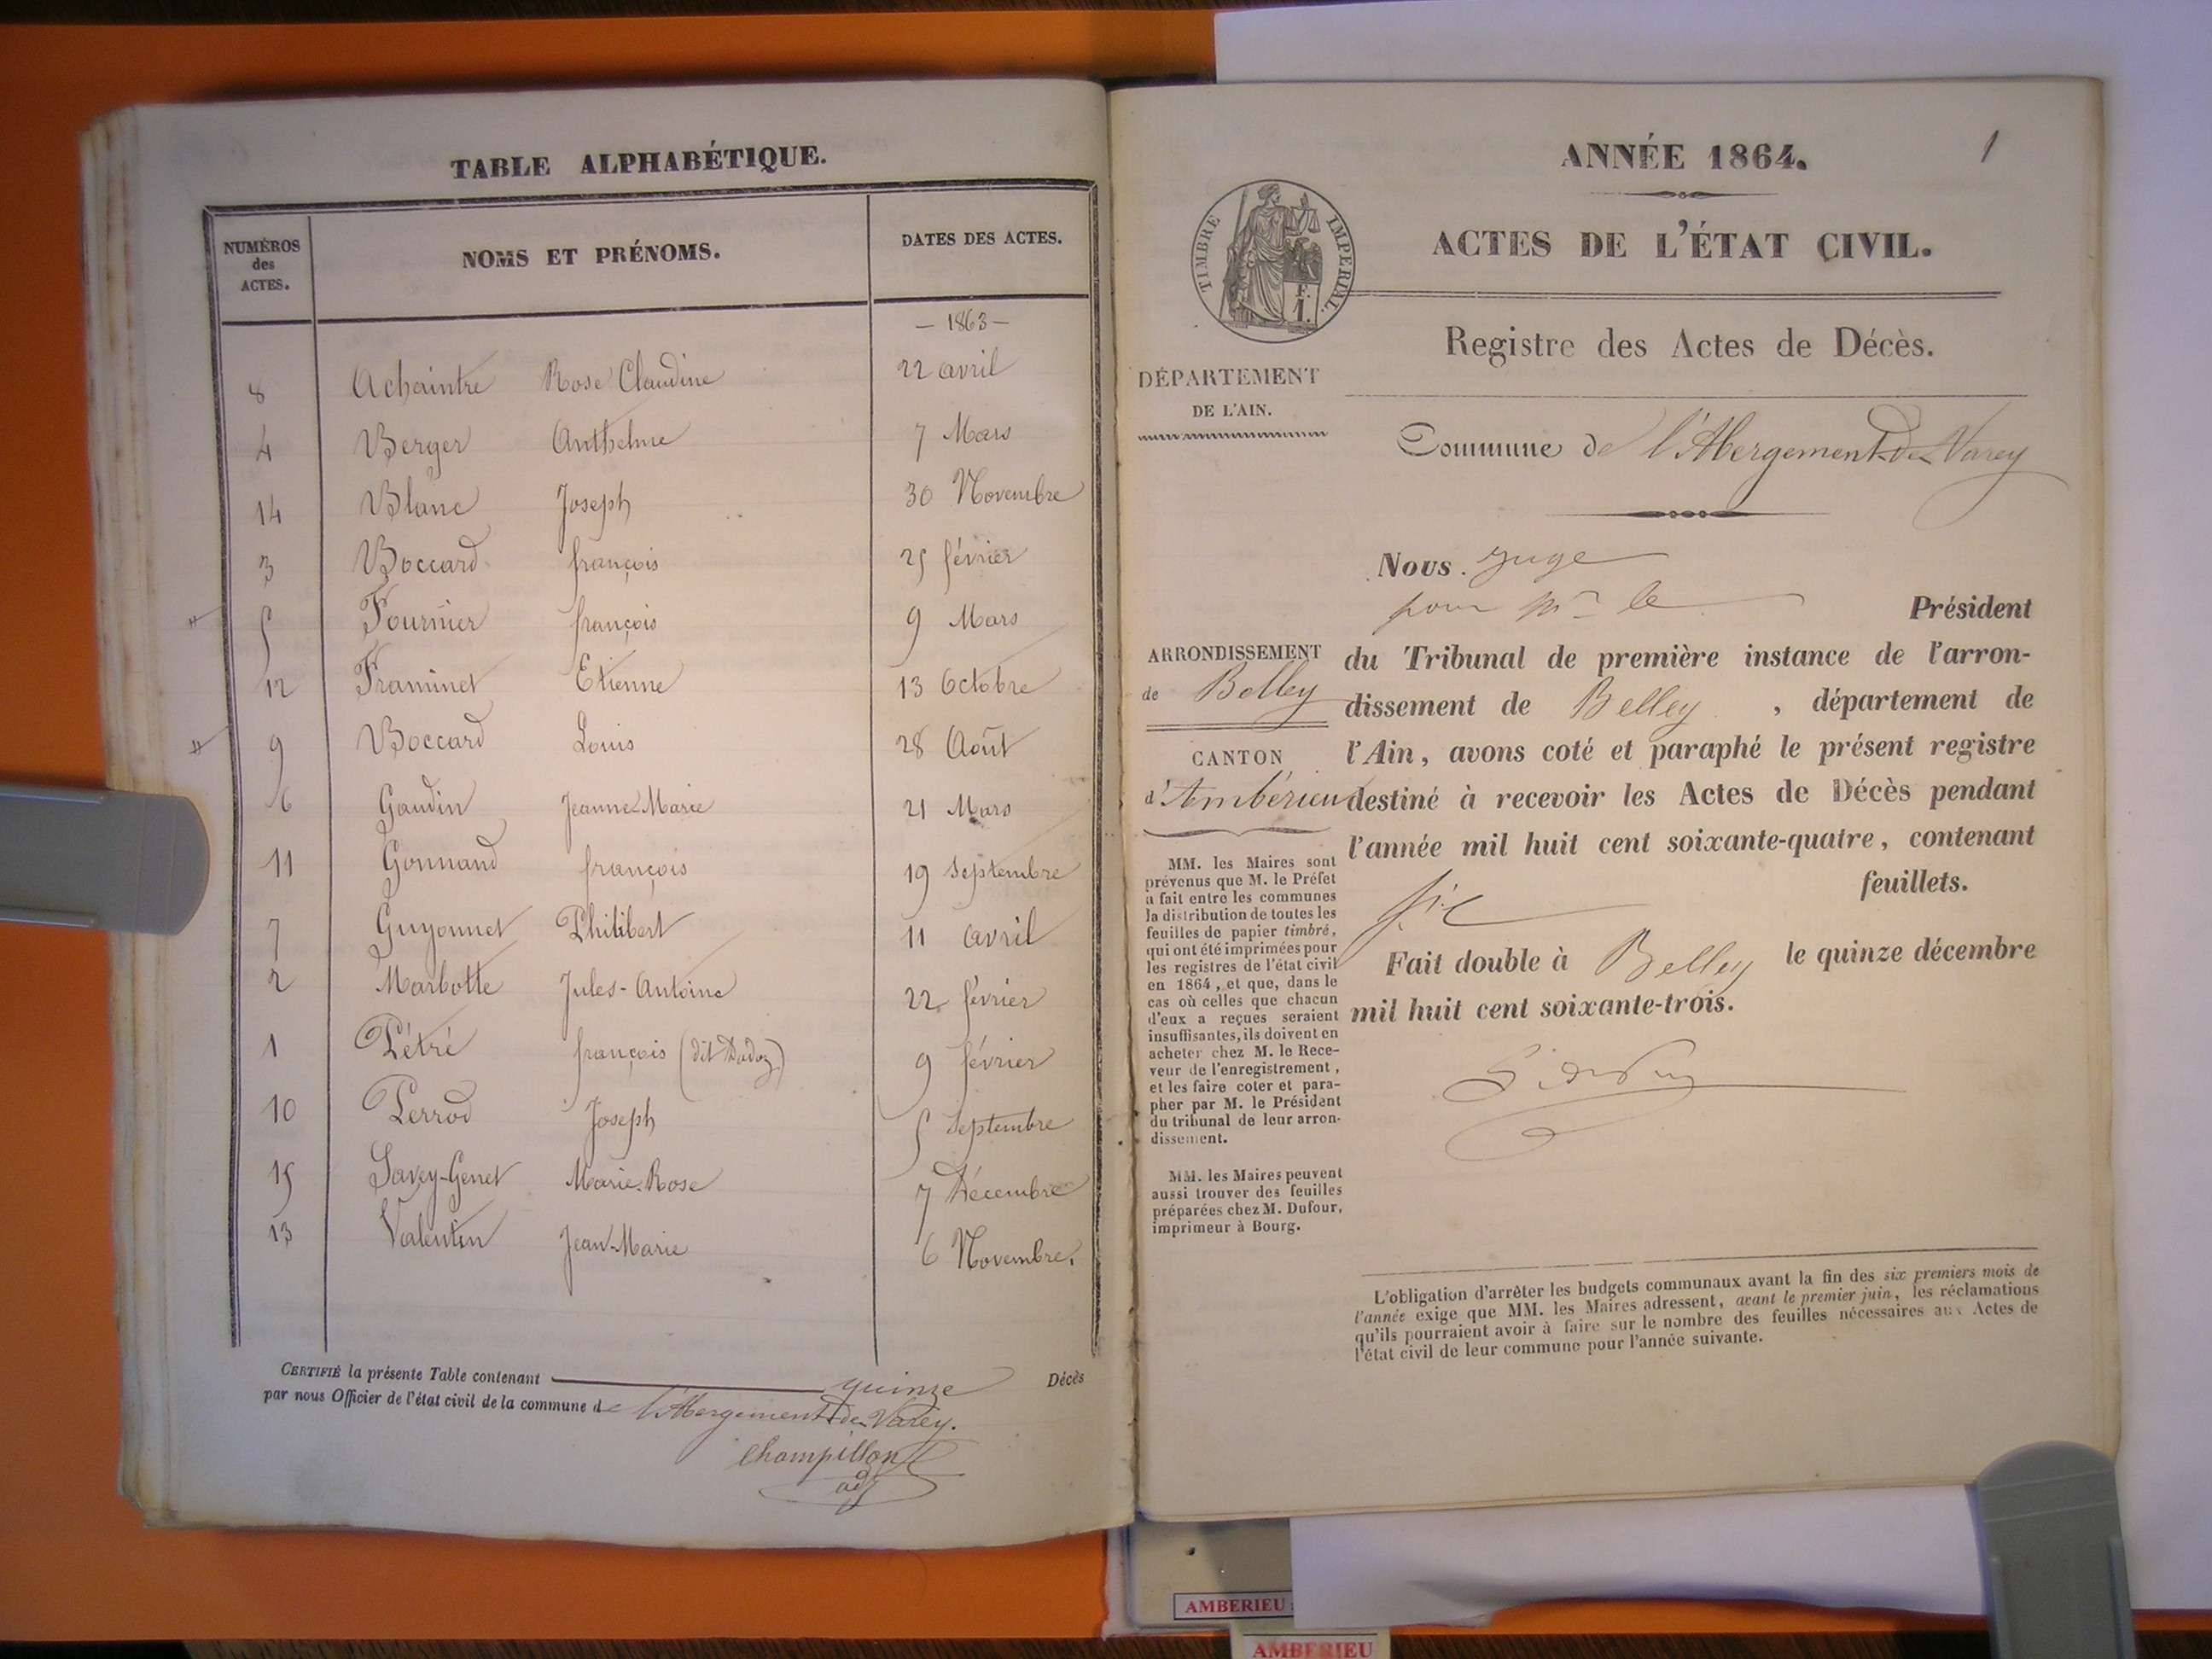 TABLE ALPHABÉTIQUE.
NUMÉROS des ACTES. NOMS ET PRÉNOMS. DATES DES ACTES.
— 1863 —
8 Achaintre Rose Claudine 22 avril
4 Berger Anthelme 7 Mars
14 Blanc Joseph 30 Novembre
3 Boccard françois 25 février
5 Fournier françois 9 Mars
12 Framinet Etienne 13 Octobre
9 Boccard Louis 28 Août
6 Gaudin Jeanne Marie 21 Mars
11 Gonnand françois 19 Septembre
7 Guyonnet Philibert 11 avril
2 Marbotte Jules-Antoine 22 février
1 Pétré françois (dit Dadoz) 9 février
10 Perrod Joseph 5 Septembre
15 Savey-Genet Marie-Rose 7 Décembre
13 Valentin Jean-Marie 6 Novembre.
CERTIFIÉ la présente Table contenant quinze Décès
par nous Officier de l'état civil de la commune de l'Abergement-de-Varey.
Champillon
adj
1
ANNÉE 1864.
ACTES DE L'ÉTAT CIVIL.
TIMBRE IMPERIAL.
F.
1.
Registre des Actes de Décès.
DÉPARTEMENT
DE L'AIN.
Commune de l'Abergement-de-Varey
Nous juge
pour Mr le Président
ARRONDISSEMENT
de Belley
CANTON
d'Ambérieu
du Tribunal de première instance de l'arron-
dissement de Belley, département de
l'Ain, avons coté et paraphé le présent registre
destiné à recevoir les Actes de Décès pendant
l'année mil huit cent soixante-quatre, contenant
six feuillets.
Fait double à Belley le quinze décembre
mil huit cent soixante-trois.
MM. les Maires sont
prévenus que M. le Préfet
a fait entre les communes
la distribution de toutes les
feuilles de papier timbré,
qui ont été imprimées pour
les registres de l'état civil
en 1864, et que, dans le
cas où celles que chacun
d'eux a reçues seraient
insuffisantes, ils doivent en
acheter chez M. le Rece-
veur de l'enregistrement,
et les faire coter et para-
pher par M. le Président
du tribunal de leur arron-
dissement.
MM. les Maires peuvent
aussi trouver des feuilles
préparées chez M. Dufour,
imprimeur à Bourg.
L'obligation d'arrêter les budgets communaux avant la fin des six premiers mois de
l'année exige que MM. les Maires adressent, avant le premier juin, les réclamations
qu'ils pourraient avoir à faire sur le nombre des feuilles nécessaires aux Actes de
l'état civil de leur commune pour l'année suivante.
AMBERIEU
AMBERIEU